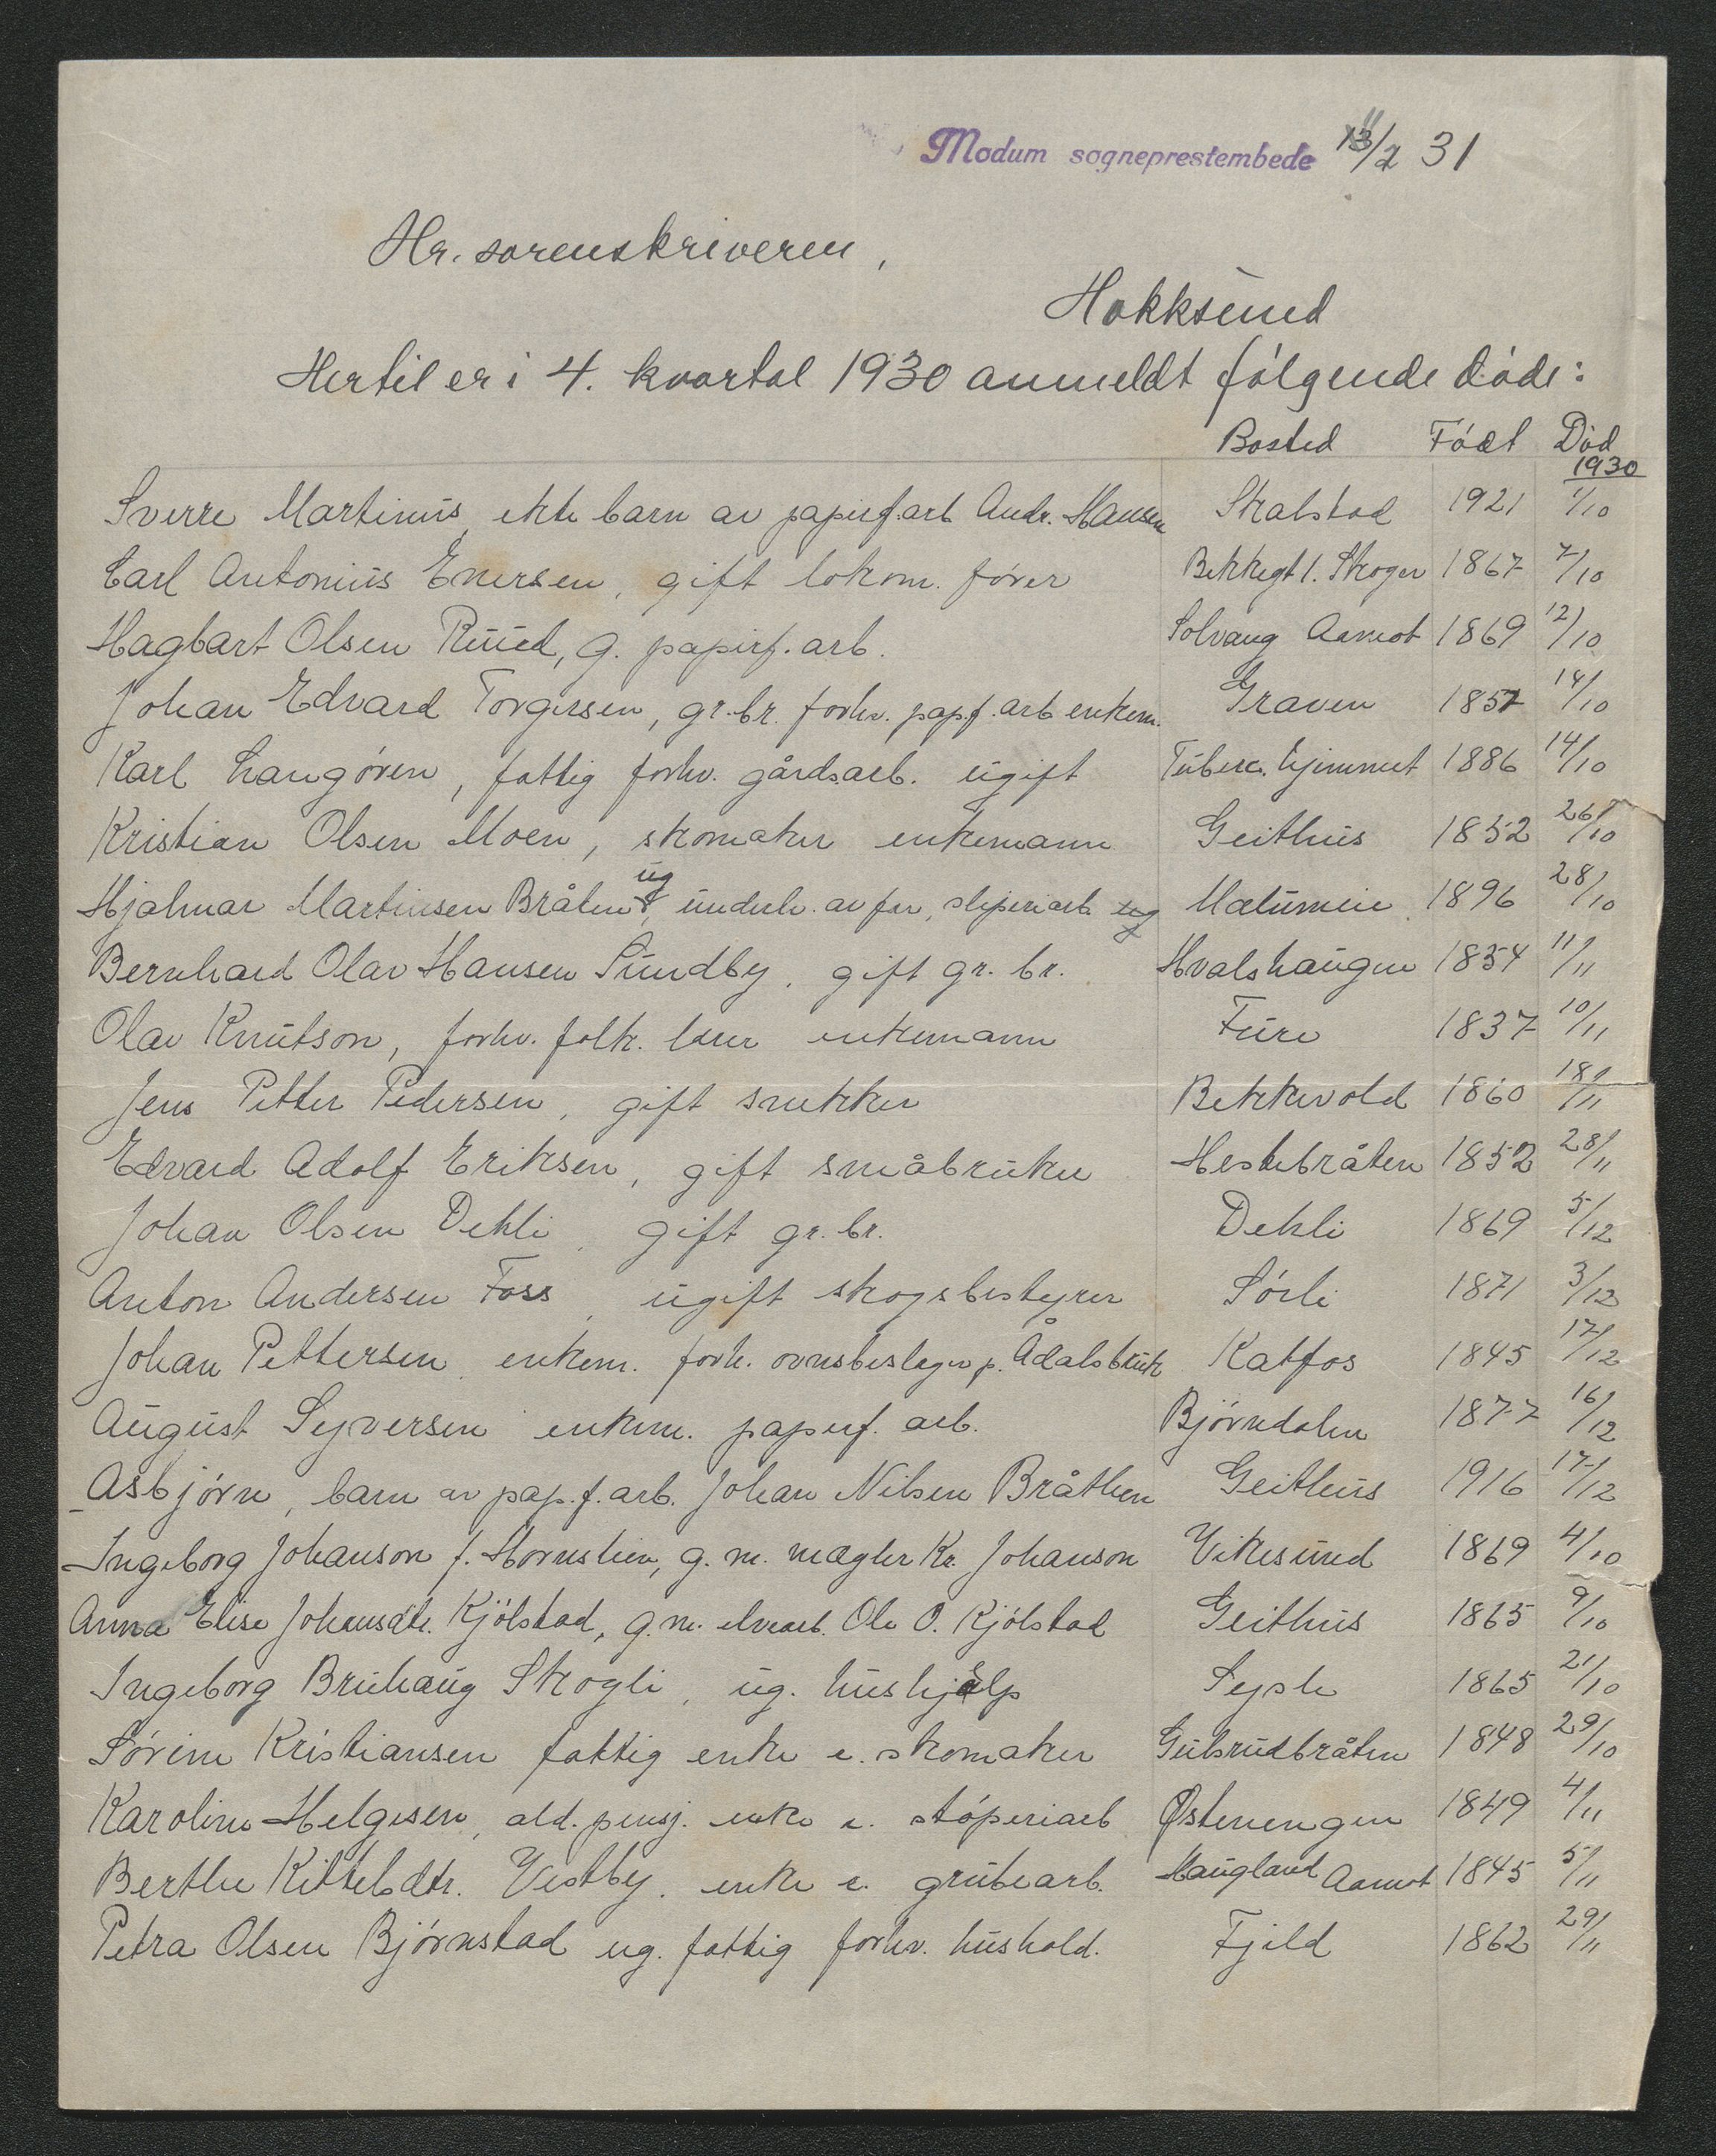 Modum sogneprestembede 11/2 31
Hr. sorenskriveren,
Hokksund
Hertil er i 4. kvartal 1930 anmeldt følgende døde:
Bosted Født Død
1930
Sverre Martinius, ekte barn av papirf.arb Andr. Hansen Skalstad 1921 1/10
Carl Antonius Enersen, gift lokom. fører Bekkegt 1. Skoger 1867 7/10
Hagbart Olsen Ruud, g. papirf. arb. Solvang Aamot 1869 12/10
Johan Edvard Torgersen, gr.br. forhv. pap.f. arb enkem. Graven 1851 14/10
Karl Langøren, fattig forhv. gårdsarb. ugift Tuberc. hjemmet 1886 14/10
Kristian Olsen Moen, skomaker enkemann Geithus 1852 26/10
Hjalmar Martinsen Bråten ug, underh. av far, sliperiarb Matumeie 1896 28/10
Bernhard Olav Hansen Sundby, gift gr. br. Hvalshaugen 1854 11/11
Olav Knutson, forhv. folk. lærer enkemann Fure 1837 10/11
Jens Petter Pedersen, gift snekker Bekkevold 1860 18/11
Edvard Adolf Eriksen, gift småbruker Hestebråten 1852 28/11
Johan Olsen Dehli, gift gr. br. Dehli 1869 5/12
Anton Andersen Foss, ugift skogsbestyrer Sørli 1871 3/12
Johan Pettersen, enkem. forh. ovnsbeslager p. Ådalsbruk Katfos 1845 17/12
August Syversen enkem. papirf. arb. Bjørndalen 1877 16/12
Asbjørn, barn av pap.f.arb. Johan Nilsen Bråthen Geithus 1916 17/12
Ingeborg Johanson f. Hornslien, g.m. mægler Kr. Johanson Vikesund 1869 4/10
Anna Elise Johansdtr. Kjølstad, g.m. elvearb. Ole O. Kjølstad Geithus 1865 9/10
Ingeborg Bruhaug Skogli, ug. hushjelp Sysle 1865 21/10
Sørine Kristiansen fattig enke e. skomaker Gulsrudbråten 1848 29/10
Karoline Helgesen, ald. pensj. enke e. støperiarb Østenengen 1849 4/11
Berthe Kittelsdtr. Vestby, enke e. grubearb. Haugland Aamot 1845 5/11
Petra Olsen Bjørnstad ug. fattig forhv. hushold. Fjeld 1862 29/11